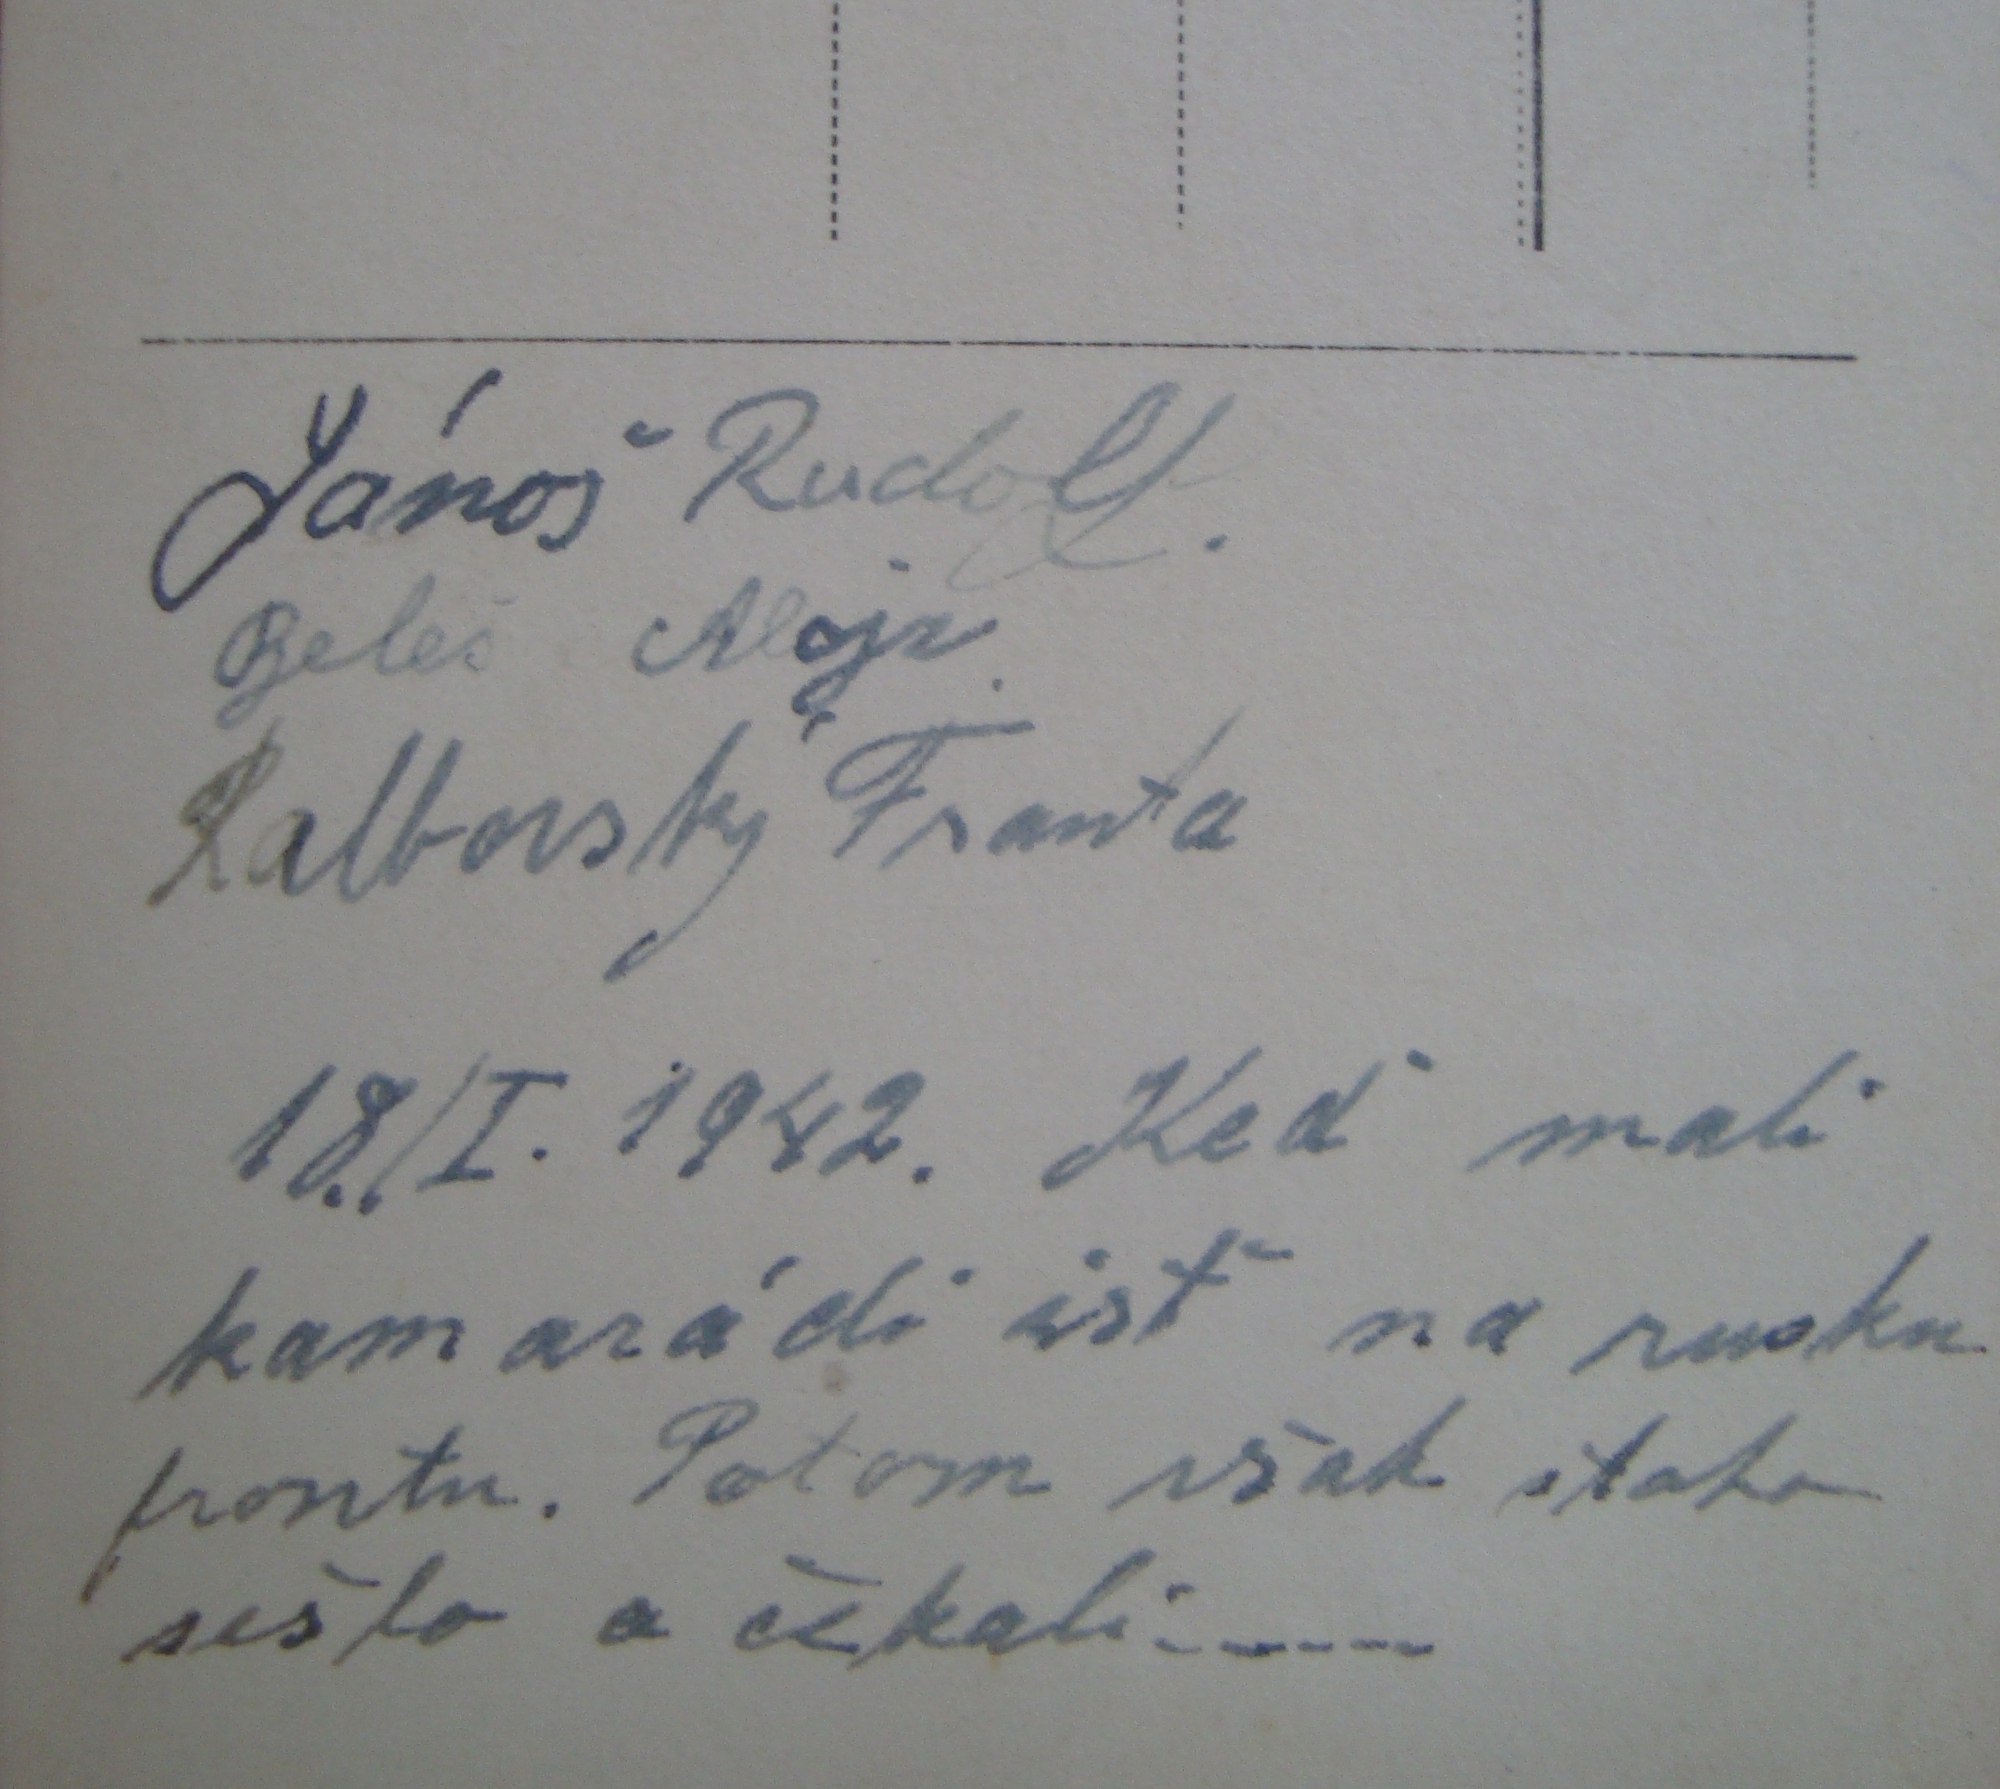 Jánoš Rudolf.
Beleš Alojz.
Kalborský Franta
18./I. 1942. Keď mali
kamarádi isť na rusku
frontu. Potom však stoho
sešlo a čekali....